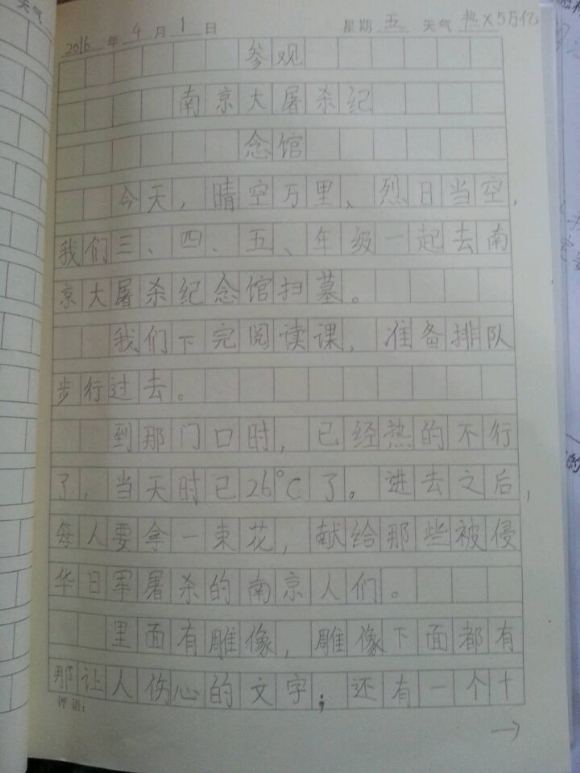 天气
2016 年 4 月 1 日 星期 五 天气 热X5万亿
参观
南京大屠杀纪
念馆
今天，晴空万里、烈日当空，
我们三、四、五、年级一起去南
京大屠杀纪念馆扫墓。
我们下完阅读课，准备排队
步行过去。
到那门口时，已经热的不行
了，当天时已26°C了。进去之后，
每人要拿一束花，献给那些被侵
华日军屠杀的南京人们。
里面有雕像，雕像下面都有
那让人伤心的文字；还有一个十
评语：
→